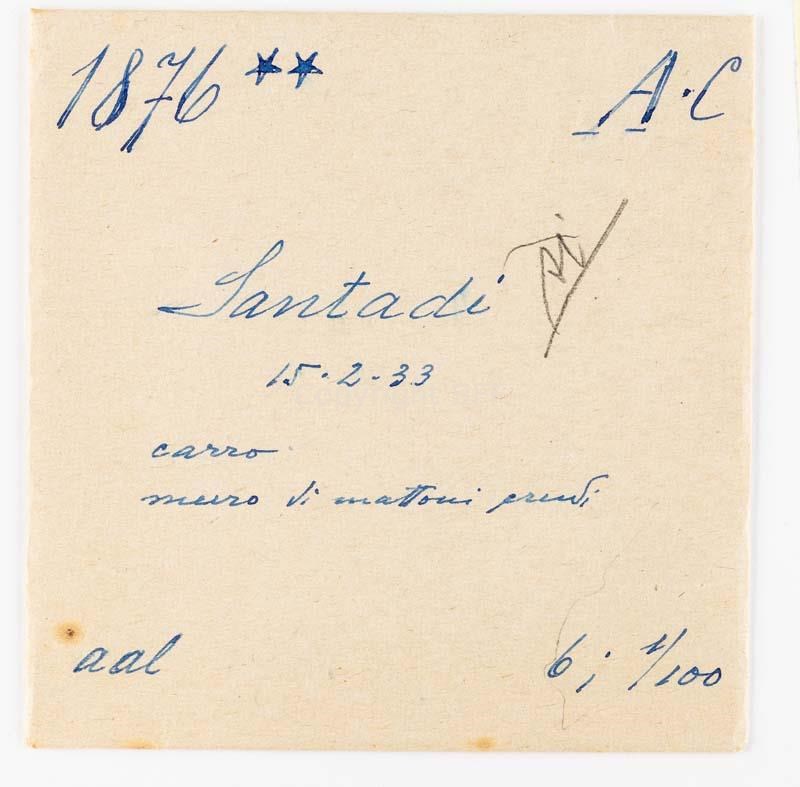 1876 ** A.C
Santadi
15.2.33
carro
muro di mattoni crudi
aal 6; 1/100